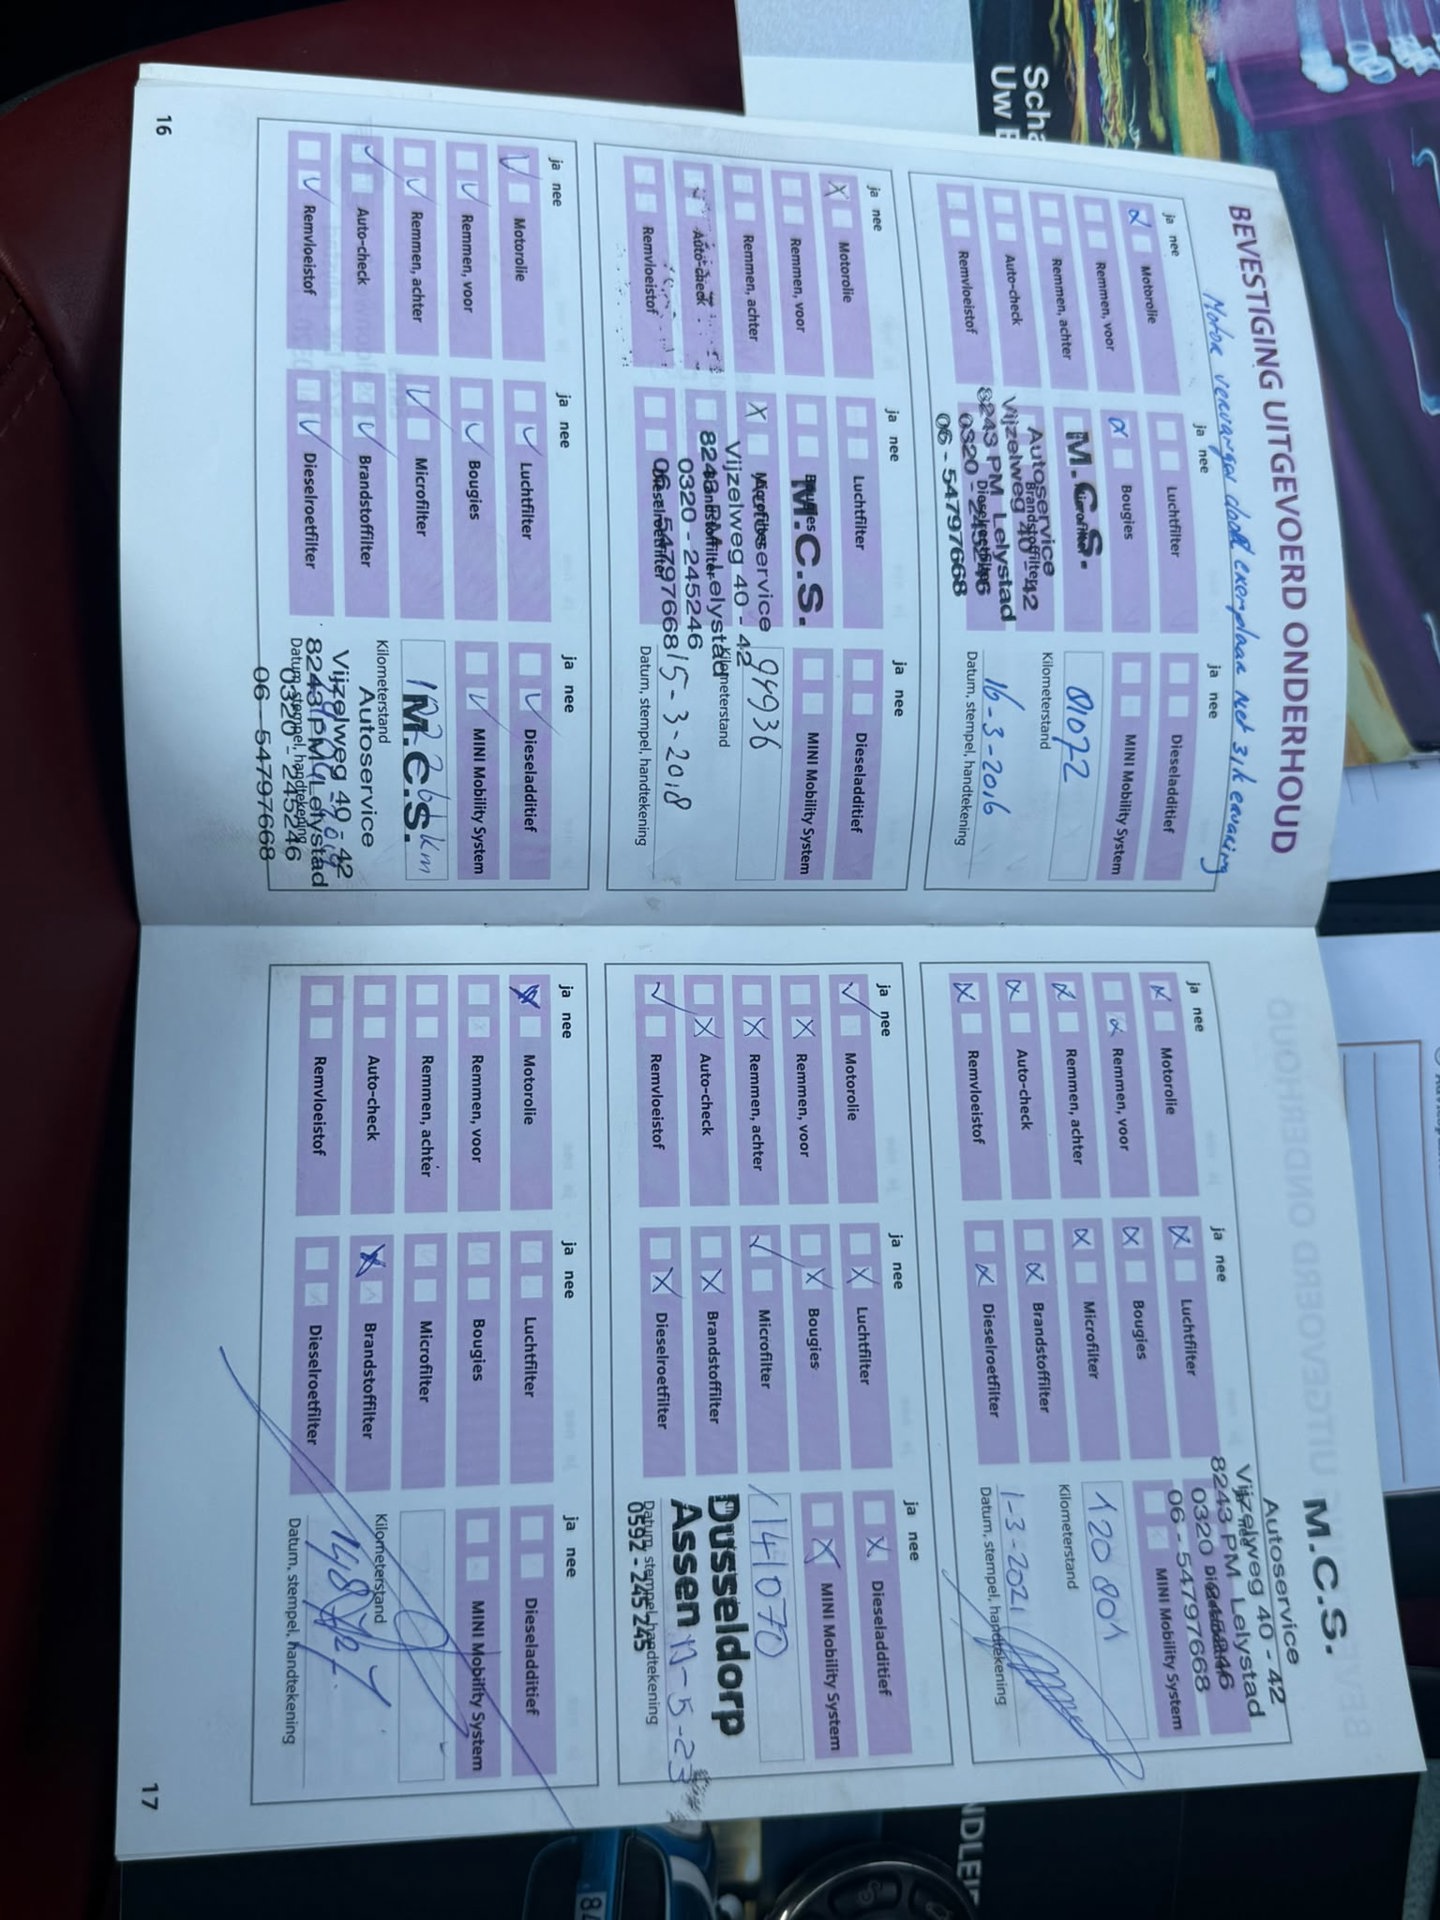 BEVESTIGING UITGEVOERD ONDERHOUD
Motor vervangen door exemplaar met 31k ervaring
ja nee
ja nee
ja nee
Motorolie
Luchtfilter
Dieseladditief
Remmen, voor
Bougies
MINI Mobility System
Remmen, achter
Microfilter
81072
Auto-check
Brandstoffilter
Kilometerstand
Remvloeistof
Dieselroetfilter
16-3-2016
Datum, stempel, handtekening
M.C.S.
Autoservice
Vijzelweg 40 - 42
8243 PM Lelystad
0320 - 245246
06 - 54797668
ja nee
ja nee
ja nee
Motorolie
Luchtfilter
Dieseladditief
Remmen, voor
Bougies
MINI Mobility System
Remmen, achter
Microfilter
94936
Auto-check
Brandstoffilter
Kilometerstand
Remvloeistof
Dieselroetfilter
15-3-2018
Datum, stempel, handtekening
M.C.S.
Autoservice
Vijzelweg 40 - 42
8243 PM Lelystad
0320 - 245246
06 - 54797668
ja nee
ja nee
ja nee
Motorolie
Luchtfilter
Dieseladditief
Remmen, voor
Bougies
MINI Mobility System
Remmen, achter
Microfilter
km
Auto-check
Brandstoffilter
Kilometerstand
Remvloeistof
Dieselroetfilter
Datum, stempel, handtekening
M.C.S.
Autoservice
Vijzelweg 40 - 42
8243 PM Lelystad
0320 - 245246
06 - 54797668
16
M.C.S.
Autoservice
Vijzelweg 40 - 42
8243 PM Lelystad
0320 - 245246
06 - 54797668
ja nee
ja nee
ja nee
Motorolie
Luchtfilter
Dieseladditief
Remmen, voor
Bougies
MINI Mobility System
Remmen, achter
Microfilter
120801
Auto-check
Brandstoffilter
Kilometerstand
Remvloeistof
Dieselroetfilter
1-3-2021
Datum, stempel, handtekening
ja nee
ja nee
ja nee
Motorolie
Luchtfilter
Dieseladditief
Remmen, voor
Bougies
MINI Mobility System
Remmen, achter
Microfilter
141070
Auto-check
Brandstoffilter
Dusseldorp
Remvloeistof
Dieselroetfilter
Assen
Datum, stempel, handtekening
0592 - 245 245
ja nee
ja nee
ja nee
Motorolie
Luchtfilter
Dieseladditief
Remmen, voor
Bougies
MINI Mobility System
Remmen, achter
Microfilter
Auto-check
Brandstoffilter
Kilometerstand
Remvloeistof
Dieselroetfilter
Datum, stempel, handtekening
17